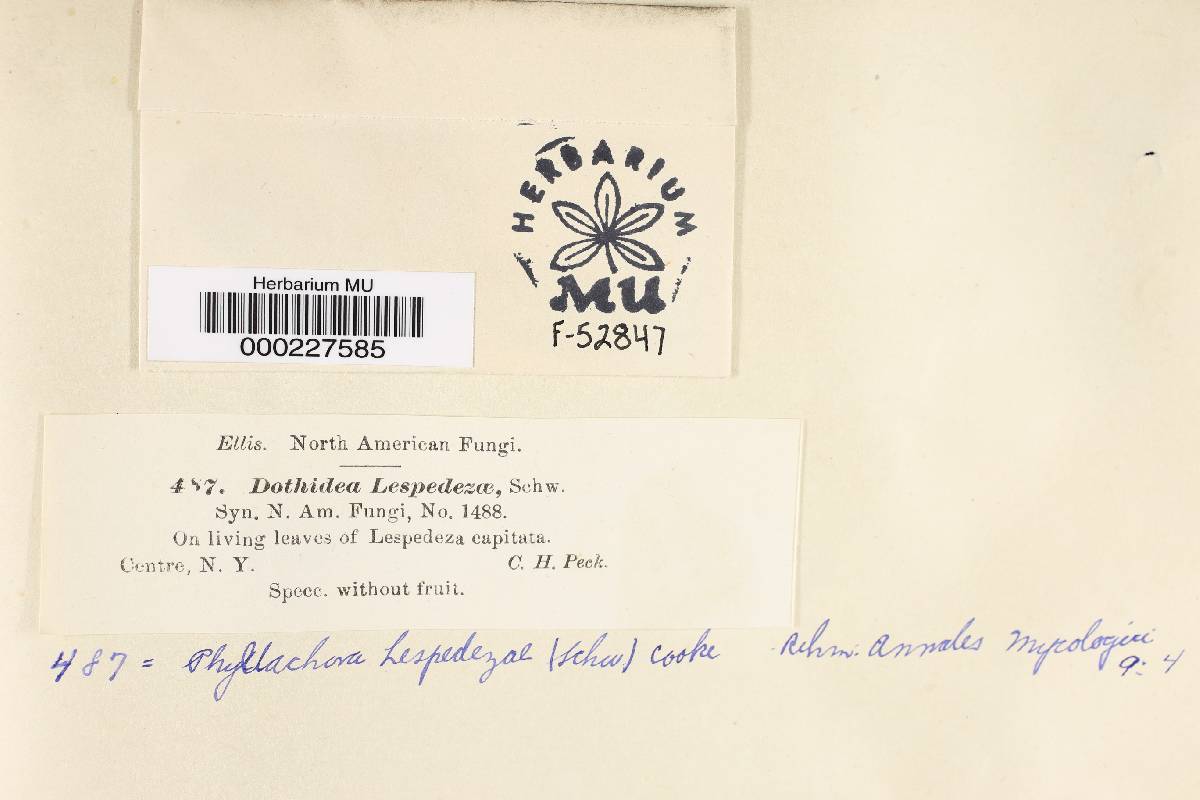 HERBARIUM
MU
F-52847
Herbarium MU
000227585
Ellis. North American Fungi.
487. Dothidea Lespedezæ, Schw.
Syn. N. Am. Fungi, No. 1488.
On living leaves of Lespedeza capitata.
Centre, N. Y. C. H. Peck.
Specc. without fruit.
487 = Phyllachora Lespedezae (Schw) Cooke Rehm. Annales Mycologici
9: 4